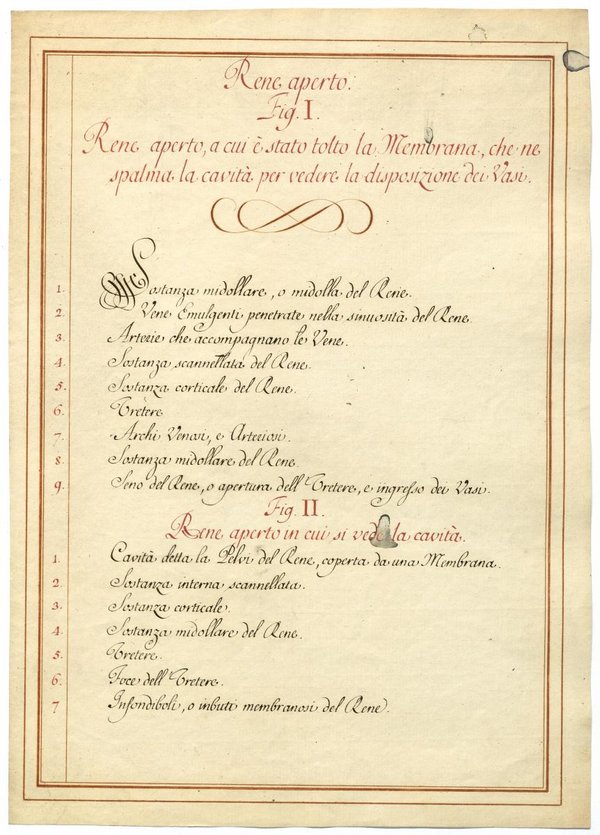 Rene aperto.
Fig. I.
Rene aperto, a cui è stato tolto la Membrana, che ne
spalma la cavità per vedere la disposizione dei Vasi.
1. Sostanza midollare, o midolla del Rene.
2. Vene Emulgenti penetrate nella sinuosità del Rene.
3. Arterie che accompagnano le Vene.
4. Sostanza scannellata del Rene.
5. Sostanza corticale del Rene.
6. Uretere
7. Archi Venosi, e Arteriosi.
8. Sostanza midollare del Rene.
9. Seno del Rene, o apertura dell'Uretere, e ingresso dei Vasi.
Fig. II.
Rene aperto in cui si vede la cavità.
1. Cavità detta la Pelvi del Rene, coperta da una Membrana.
2. Sostanza interna scannellata.
3. Sostanza corticale.
4. Sostanza midollare del Rene.
5. Uretere.
6. Foce dell'Uretere.
7 Infondiboli, o inbuti membranosi del Rene.